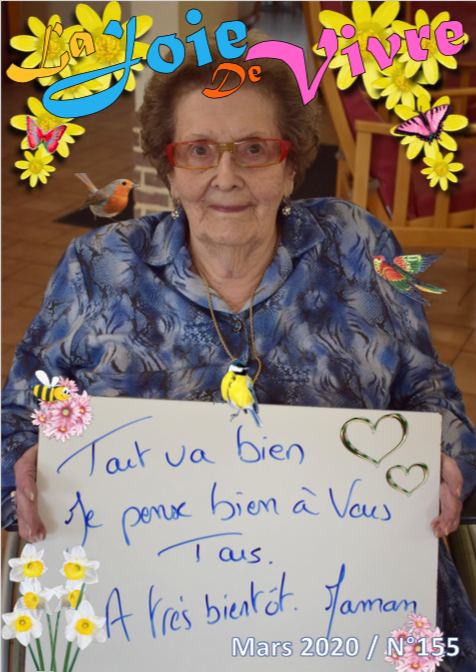 La Joie De Vivre
Tout va bien
Je pense bien à Vous
Tous.
A très bientôt. Maman
Mars 2020 / N°155